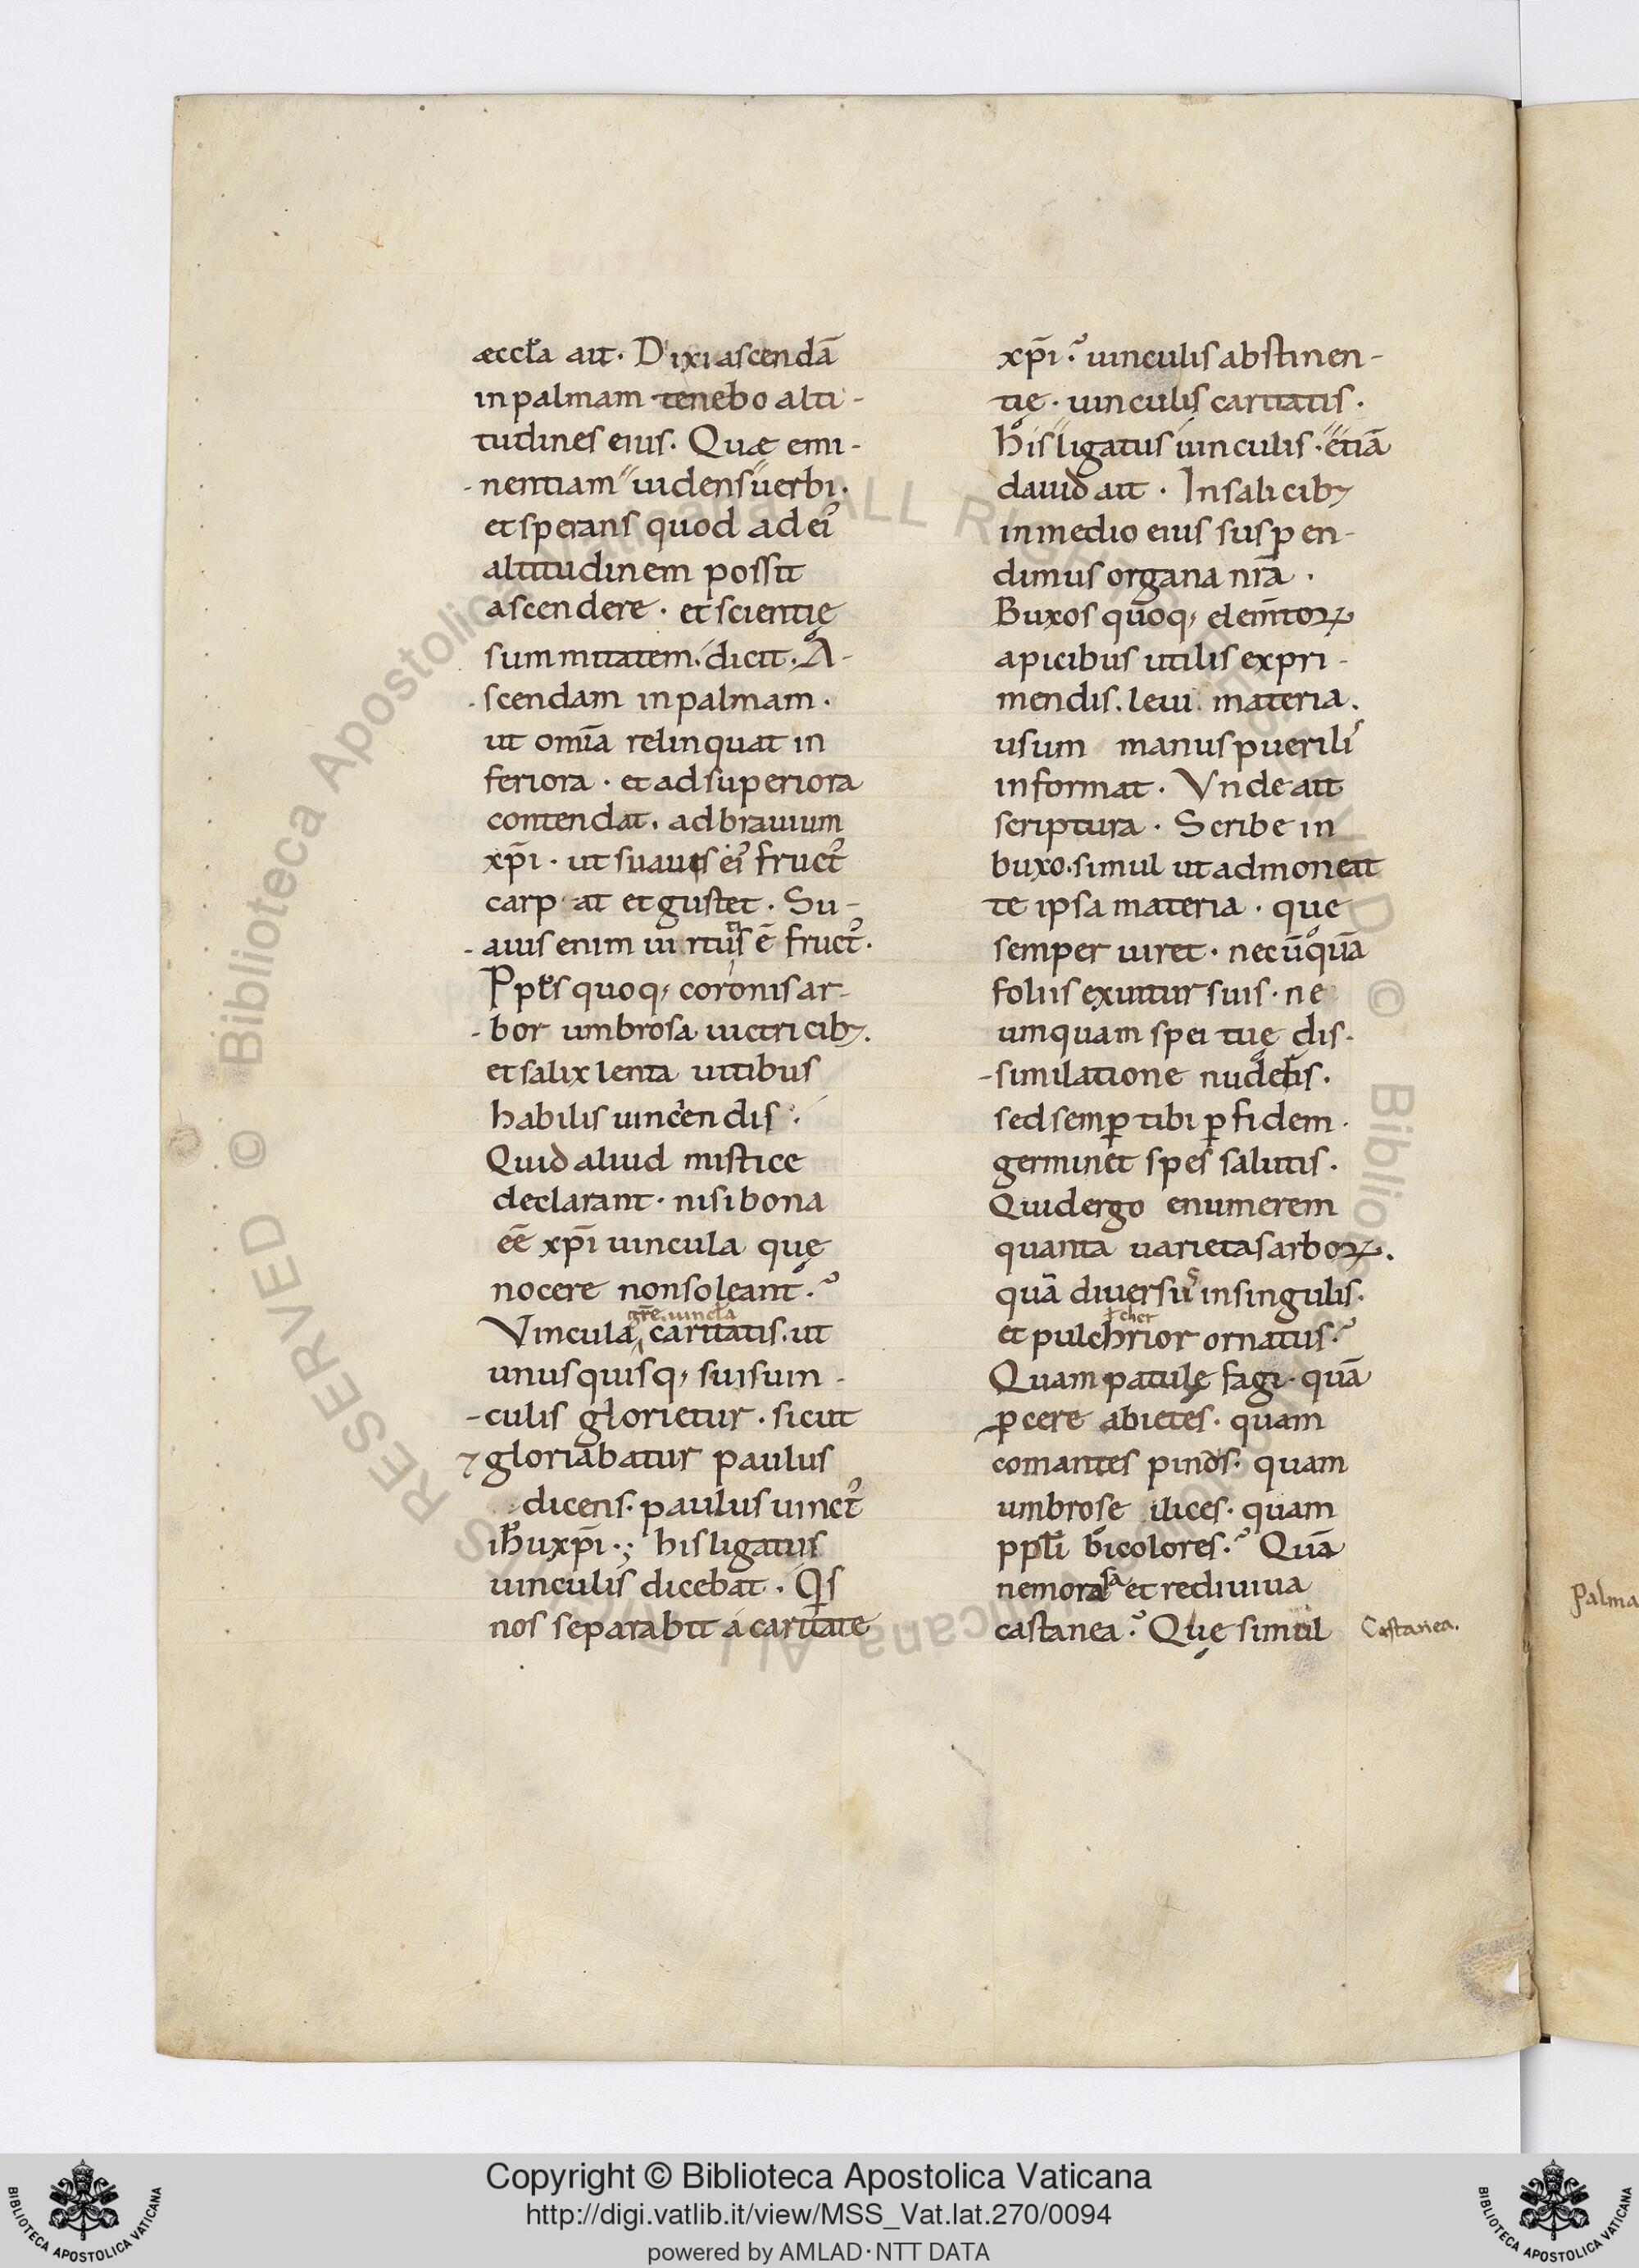 æccl̄a ait. Dixi ascendā
in palmam tenebo alti-
tudines eius. Quæ emi-
-nentiam uidens uerbi.
et sperans quod ad ei᾽
altitudinem possit
ascendere. et scientię
summitatem. dicit. A-
-scendam in palmam.
ut om̄ia relinquat in
feriora. et ad superiora
contendat. ad brauium
xp̄i. ut suaues ei᾽ fruct᾽
carpat et gustet. Su-
-auis enim uirtutis ē fruct᾽.
quoq; coronis ar-
-bor umbrosa uictricib;.
et salix lenta uitibus
habilis uinciendis.
Quid aliud mistice
declarant. nisi bona
eē xp̄i uincula quę
nocere non soleant.?
grē. uincl̄a
Vincula caritatis. ut
unusquisq; suis uin-
-culis glorietur. sicut
⁊ gloriabatur paulus
dicens. paulus uinct᾽
ih̄u xp̄i.; his ligatus
uinculis dicebat. Qis
nos separabit a caritate
xp̄i.? uinculis abstinen-
tię. uinculis caritatis.
His ligatus uinculis. etiā
dauid ait. In salicib;
in medio eius suspen-
dimus organa nr̄a.
Buxos quoq; elem̄toꝝ
apicibus utilis expri-
mendis. leui materia.
usum manus puerili᾽
informat. Vnde ait
scriptura. Scribe in
buxo. simul ut admoneat
te ipsa materia. que
semper uiret. nec ūquā
foliis exuitur suis. ne
umquam spei tuę dis-
-similatione nuderis.
sed semꝑ tibi ꝑ fidem.
germinet spes salutis.
Quid ergo enumerem
quanta uarietas arboꝝ.
quā diuersus in singulis.
ł cher
et pulchrior ornatus.?
Quam patulę fagi. quā
ꝓcere abietes. quam
comantes pinos. quam
umbrose ilices. quam
ppl̄i bicolores.? Quā
nemorosa et rediuiua
castanea.? Quę simul
Castanea.
Palma
Copyright © Biblioteca Apostolica Vaticana
http://digi.vatlib.it/view/MSS_Vat.lat.270/0094
powered by AMLAD·NTT DATA
BIBLIOTECA APOSTOLICA VATICANA
BIBLIOTECA APOSTOLICA VATICANA